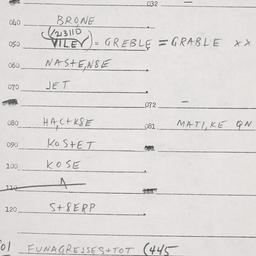 032 —
040 BRONE
(21311D
050 VILEY) = GREBLE = GRABLE xx
060 NASTE,NSE
070 JET
072 —
080 HA,C+KSE 081 MATI,KE QN
090 KOS+ET
100 KOSE
110 A
120 S+SERP
01 FUNAGRESSES+TOT (445